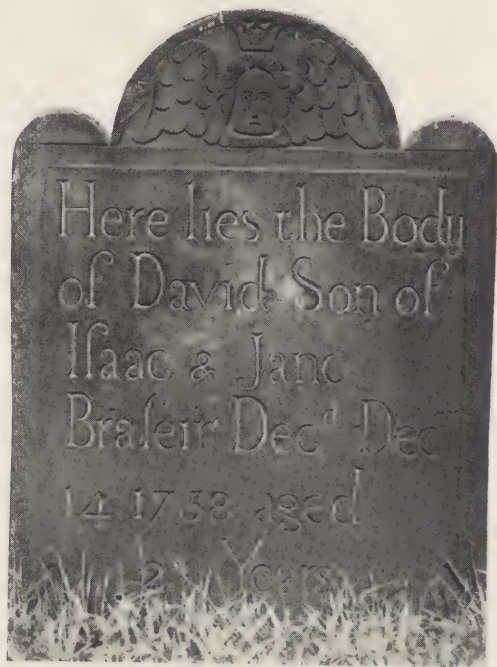 Here lies the Body
of David Son of
Iſaac & Jane
Braſeir Decd Decr
14 1758 aged
2 Years